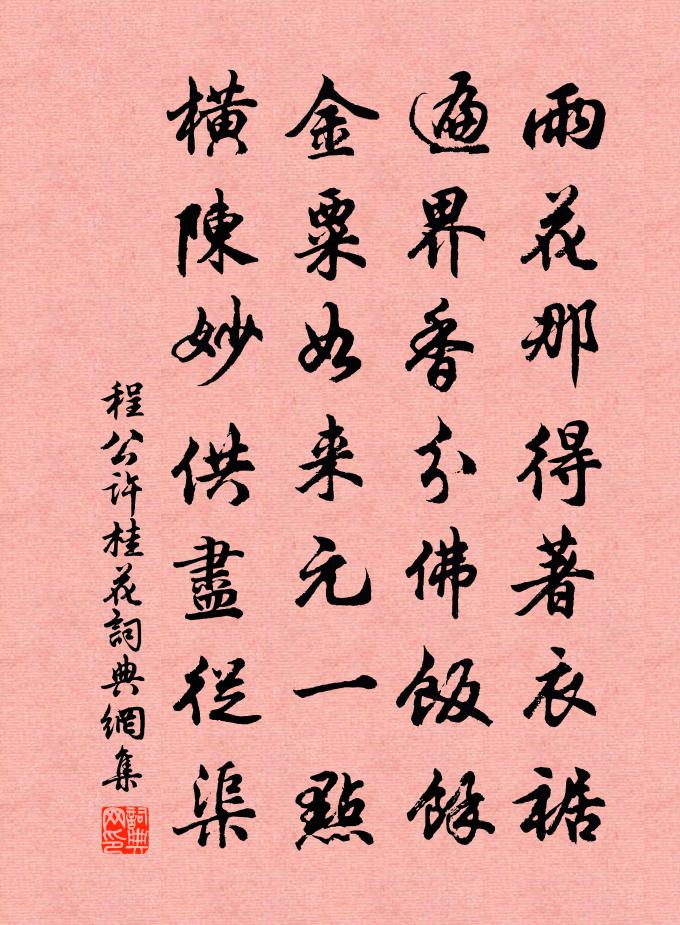 雨花那得著衣裾
遍界香分佛飯餘
金粟如来元一點
橫陳妙供盡從渠
程公许桂花詞典網集
詞典网印